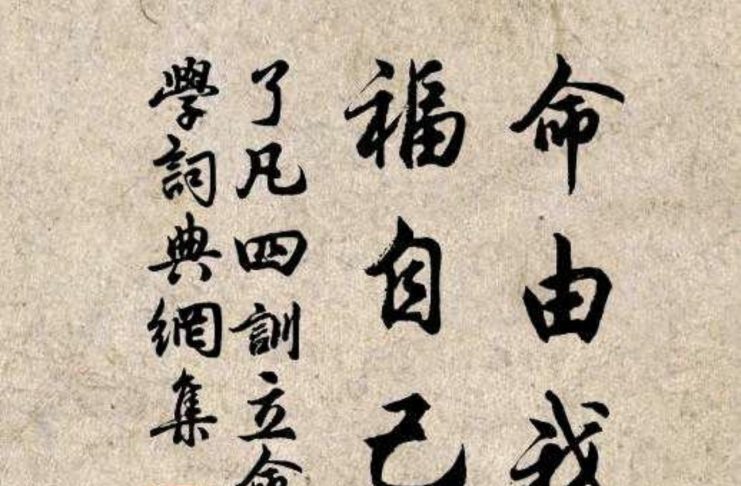 命由我
福自己
了凡四訓立命
學詞典網集